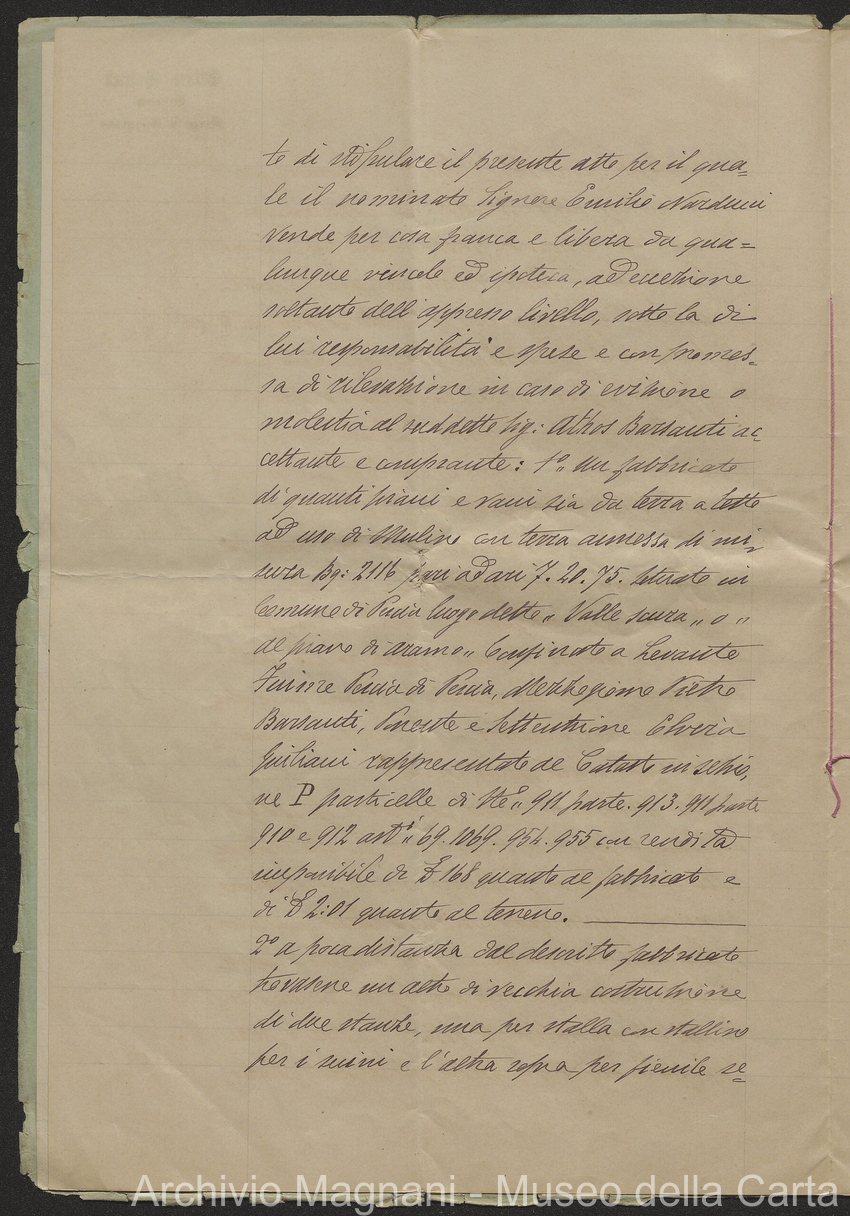 te di stipulare il presente atto per il qua=
le il nominato Signore Emilio Narducci
vende per cosa franca e libera da qua=
lunque vincolo ed ipoteca, ad eccezione
soltanto dell'appresso livello, sotto la di
lui responsabilità e spese e con promes=
sa di rilevazione in caso di evizione o
molestia al suddetto Sig: Athos Barsanti ac=
cettante e comprante: 1° un fabbricato
di quanti piani e vani sia da terra a tetto
ad uso di Mulino con terra annessa di mi=
sura Bq: 2116 pari ad ari 7.20.75. situato in
Comune di Pescia luogo detto „ Valle scura „ o „
al piano di aramo „ Confinato a Levante
Fiume Pescia di Pescia, Mezzogiorno Pietro
Barsanti, Ponente e Settentrione Elvira
Giuliani rappresentato al Catasto in Sezio=
ne P particelle di N.° 911 parte. 913. 911 parte
910 e 912 art.i 69. 1069. 954. 955 con rendita
imponibile di £ 168 quanto al fabbricato e
di £ 2:01 quanto al terreno.
2° a poca distanza dal descritto fabbricato
trovasene un altro di vecchia costruzione
di due stanze, una per stalla con stallino
per i suini e l'altra sopra per fienile se=
Archivio Magnani - Museo della Carta